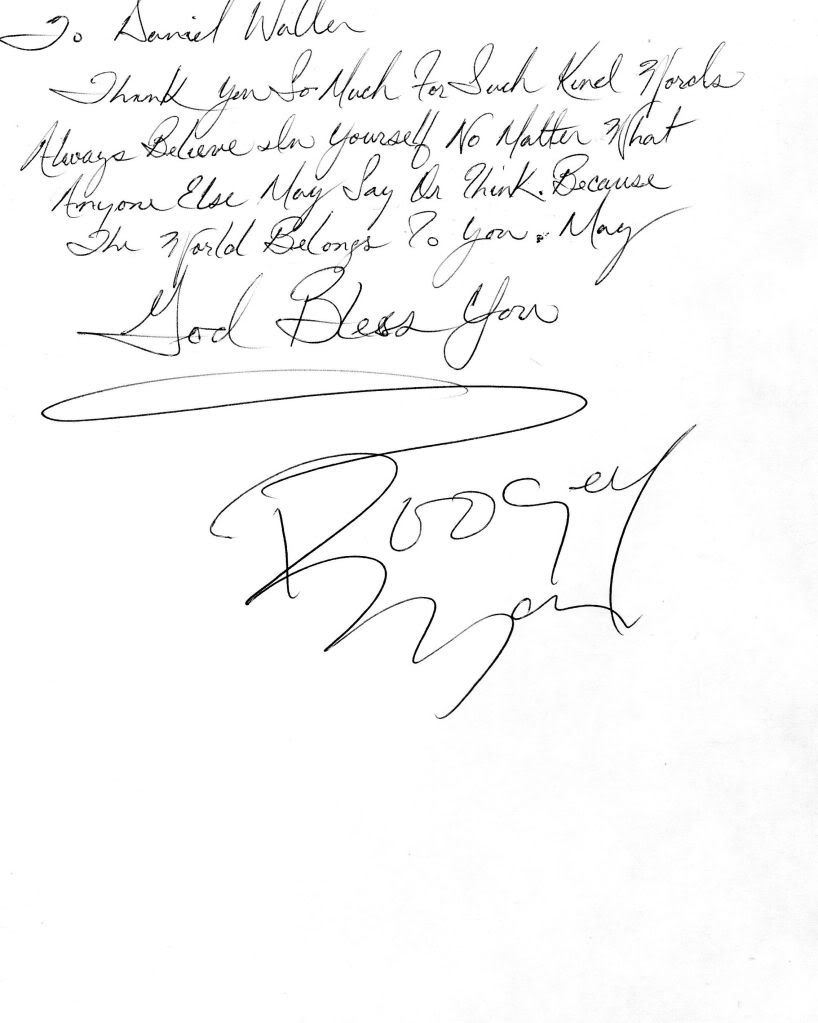 To Daniel Waller
Thank You So Much For Such Kind Words
Always Believe In Yourself No Matter What
Anyone Else May Say Or Think. Because
The World Belongs To You. May
God Bless You